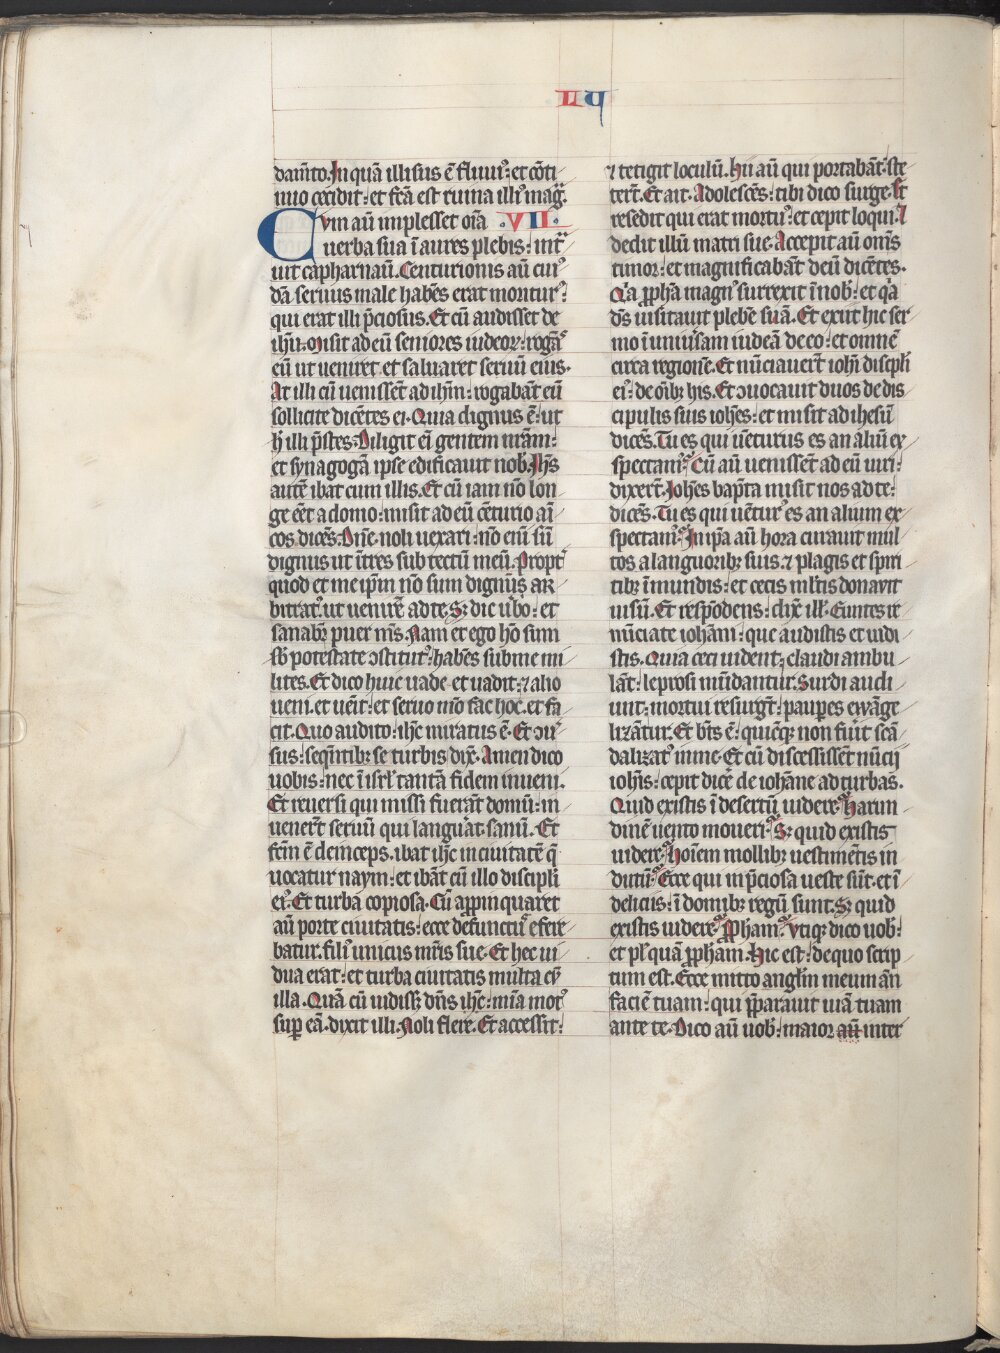 LU
dam̄to. In quā illisus ē fluui᷒: et cōti
nuo cecidit: et fc̄a est ruina illi᷒ mag̃.
Cvm aū implesset oīa .VII.
uerba sua ī aures plebis: int̃
uit capharnaū. Centurionis aū cui᷒
dā seruus male habēs erat moritur᷒:
qui erat illi p̄ciosus. Et cū audisset de
ihū: misit ad eū seniores iudeoꝝ: rogā᷒
eū ut ueniret et saluaret seruū eius.
At illi cū uenissēt ad ihm̄: rogabāt eū
sollicite dicētes ei. Quia dignus ē: ut
h̄ illi p̄stes. Diligit eī gentem nr̄am:
et synagogā ipse edificauit nob̄. Ihs̄
autē ibat cum illis. Et cū iam nō lon
ge eēt a domo: misit ad eū cēturio ami
cos dicēs. Dn̄e noli uexari: nō enī sū
dignus ut ītres sub tectū meū. propt̃
quod et me ip̄m nō sum dignūs ar
bitrat᷒ ut uenirē ad te. Sꝫ dic ūbo: et
sanabꝫ puer ms̄. Nam et ego hō sum
sb̄ potestate ↄstitut᷒: habēs sub me mi
lites. Et dico huic uade et uadit: ⁊ alio
ueni. et uēit: et seruo mō fac hoc. et fa
cit. Quo audito: ihc̄ miratus ē. Et ↄũ
sus: seqn̄tibꝫ se turbis dix̄. Amen dico
uobis: nec ī isrl̄ tantā fidem inueni.
Et reuersi qui missi fuerāt domū: in
uener̄t seruū qui languãt sanū. Et
fc̄m ē deinceps. ibat ihc̄ in ciuitatē q̄
uocatur naym: et ibāt cū illo discipl̄i
ei᷒. Et turba copiosa. Cū appinquaret
aū porte ciuitatis: ecce defunctū efere
batur. fili᷒ unicus mr̄is sue. Et hec ui
dua erat: et turba ciuitatis multa cū
illa. Quā cū uidissꝫ dn̄s ihc̄: mīa mot᷒
suꝑ eā. dixit illi. Noli flere. Et accessit:
⁊ tetigit loculū. Hii aū qui portabāt: ste
ter̄t. Et ait. Adolescēs: tibi dico surge. Et
resedit qui erat mortu᷒: et cepit loqui. ⁊
dedit illū matri sue. Accepit aū om̄s
timor: et magnificabāt deū dicētes.
Qͥa ꝓph̄a magn᷒ surrexit ī nob̄: et qͥa
ds̄ uisitauit plebē suā. Et exiit hic ser
mo ī uniũsam iudeā de eo: et omnē
circa regionē. Et nūciauer̄t ioh̄i discipl̄i
ei᷒: de oīꝫ his. Et ↄuocauit duos de dis
cipulis suis ioh̄es: et misit ad ihesū
dicēs. Tu es qui uēturus es an aliū ex
spectam᷒: Cū aū uenissēt ad eū uiri:
dixer̄t. Ioh̄es bapt̄a misit nos ad te:
dicēs. Tu es qui uētur᷒ es an alium ex
spectam᷒: In ip̄a aū hora curauit mul
tos a languoribꝫ suis. ⁊ plagis et sp̄iri
tibꝫ īmundis: et cecis mlt̄is donavit
uisū. Et respōdens: dix̄ ill̄. Euntes re
nūciate iohām: que audistis et uidi
stis. Quia ceci uident: claudi ambu
lāt: leprosi mūdantur. Surdi audi
unt: mortui resurgūt: pauꝑes ewāge
lizātur. Et bt̄s ē: quicūqꝫ non fūit scā
dalizat᷒ in me. Et cū discessissēt nūcij
ioh̄is: cepit dicē de iohāne ad turbas.
Quid existis ī desertū uidere: harun
dinē uento moueri: Sꝫ quid existis
uidere: hoīem mollibꝫ uestimētis in
dutū: Ecce qui in p̄ciosa ueste sūt. et ī
deliciis: ī domibꝫ regū sunt. Sꝫ quid
existis uidere: ꝓpham: Vtiqꝫ dico uob̄:
et pl᷒ quā ꝓpham. Hic est: de quo scrip
tum est. Ecce mitto angl̄m meum an̄
faciē tuam: qui p̄parauit uiā tuam
ante te. Dico aū uob̄: maior aū inter